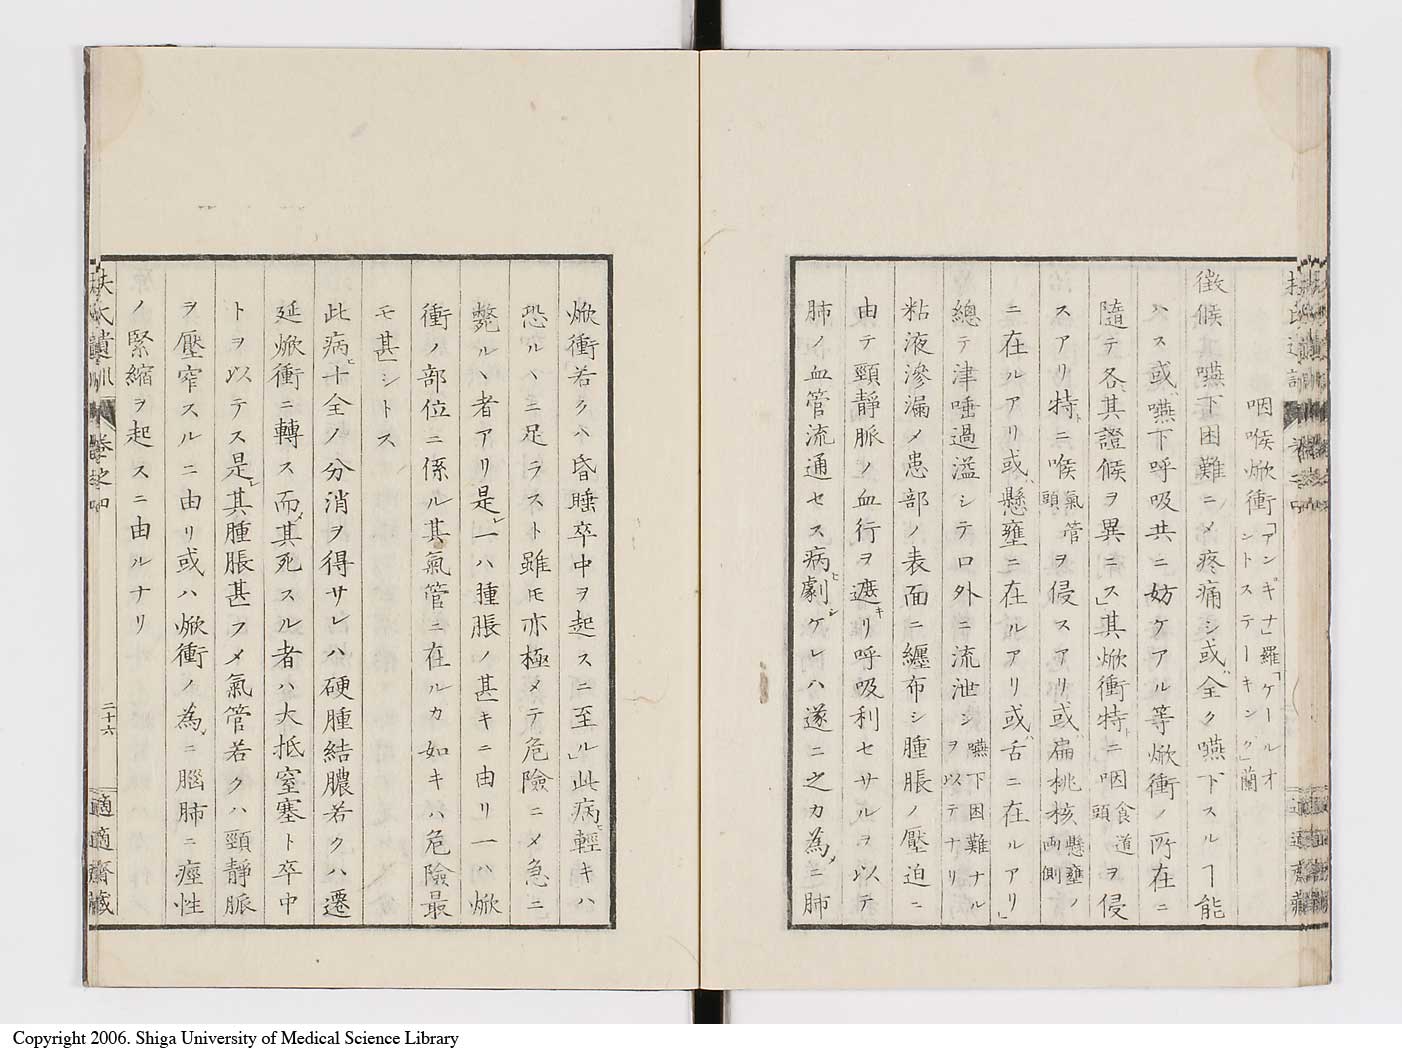 咽喉焮衝「アンギナ」羅「ケールオ
ントステーキング」蘭
徴候其嚥下困難ニメ疼痛シ或ハ全ク嚥下スルヿ能
ハス或ハ嚥下呼吸共ニ妨ケアル等焮衝ノ所在ニ
隨テ各〻其證候ヲ異ニス」其焮衝特ニ咽頭食道ヲ侵
スアリ特ニ喉頭氣管ヲ侵スアリ或ハ扁桃核懸壅ノ両側
ニ在ルアリ或ハ懸壅ニ在ルアリ或ハ舌ニ在ルアリ」
總テ津唾過溢シテ口外ニ流泄シ嚥下困難ナルヲ以テナリ
粘液滲漏メ患部ノ表面ニ纏布シ腫脹ノ壓迫ニ
由テ頸静脈ノ血行ヲ遮キリ呼吸利セサルヲ以テ
肺ノ血管流通セス病ヒ劇シケレハ遂ニ之カ為メニ肺
焮衝若クハ昏睡卒中ヲ起スニ至ル」此病ヒ輕キハ
恐ルヽニ足ラスト雖モ亦極メテ危險ニメ急ニ
斃ルヽ者アリ是レ一ハ腫脹ノ甚キニ由リ一ハ焮
衝ノ部位ニ係ル其氣管ニ在ルカ如キハ危險最
モ甚シトス
此病ヒ十全ノ分消ヲ得サレハ硬腫結膿若クハ遷
延焮衝ニ轉ス而メ其死スル者ハ大抵窒塞ト卒中
トヲ以テス是レ其腫脹甚フメ氣管若クハ頸静脈
ヲ壓窄スルニ由リ或ハ焮衝ノ為メニ腦肺ニ痙性
ノ緊縮ヲ起スニ由ルナリ
扶氏遺訓 卷之四
二十六
適適齋藏
Copyright 2006. Shiga University of Medical Science Library